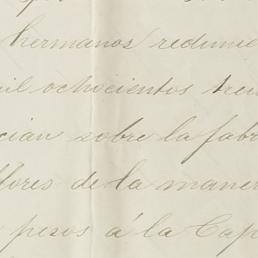 hermanos redimie
il ochocientos trein
cian sobre la fabr
lores de la maner
pesos á la Cap